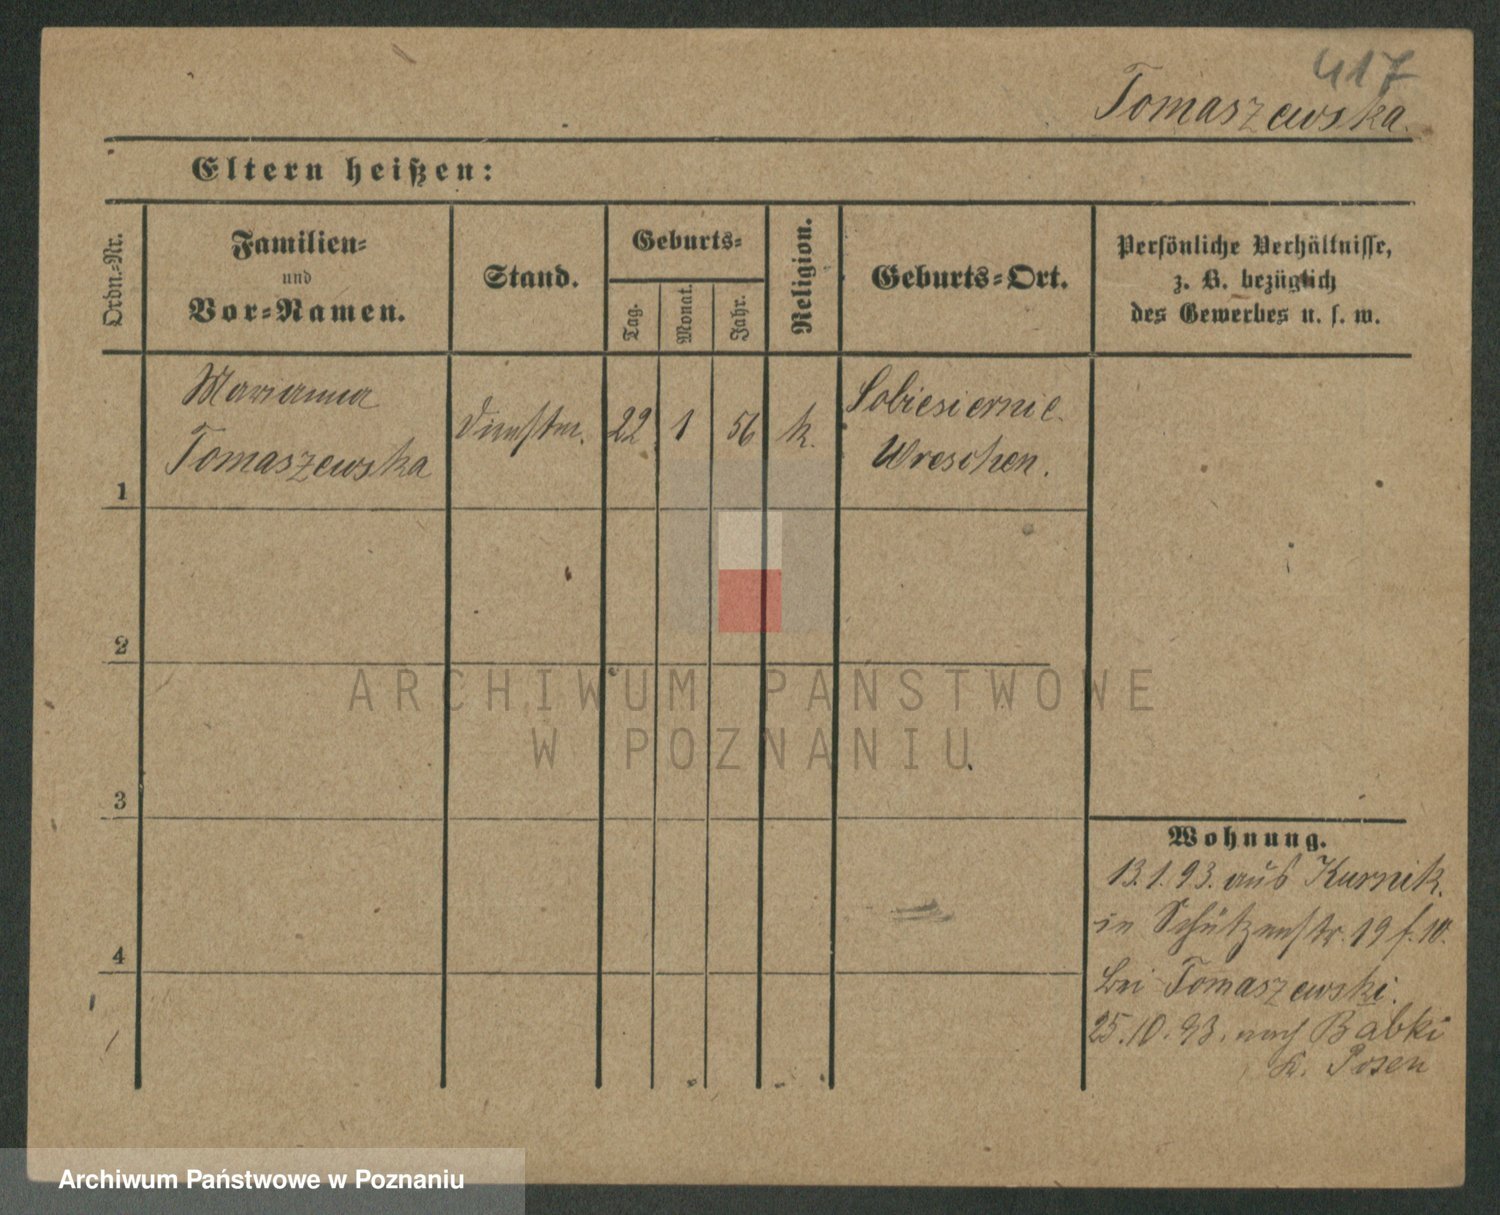 417
Tomaszewska.
Eltern heißen:
Ordn.=Nr.
Familien=
und
Vor=Namen.
Stand.
Geburts=
Tag.
Monat.
Jahr.
Religion.
Geburts=Ort.
Persönliche Verhältnisse,
z. B. bezüglich
des Gewerbes u. s. w.
Marianna
Tomaszewska
1
22
1
56
k.
Sobiesiernie
Wreschen.
2
3
4
Wohnung.
13.1.93. aus Kurnik.
in Schützenstr. 19 f. 10.
bei Tomaszewski.
25.10.93. nach Babki
K. Posen
ARCHIWUM PAŃSTWOWE
W POZNANIU
Archiwum Państwowe w Poznaniu